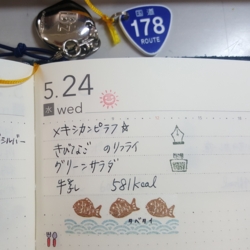 国道
178
ROUTE
5.24
水 wed
メキシカンピラフ☆
きびなごのりフライ
グリーンサラダ
牛乳 581kcal